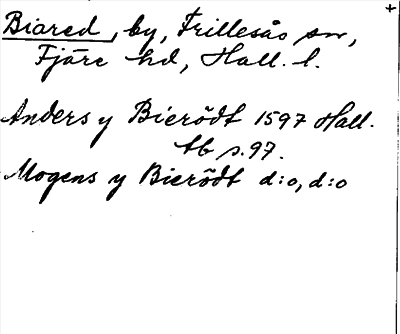 Biared, by, Frillesås sn,
Fjäre hd, Hall. l.
Anders y Bierödt 1597 Hall.
tb s. 97.
Mogens y Bierödt d:o, d:o